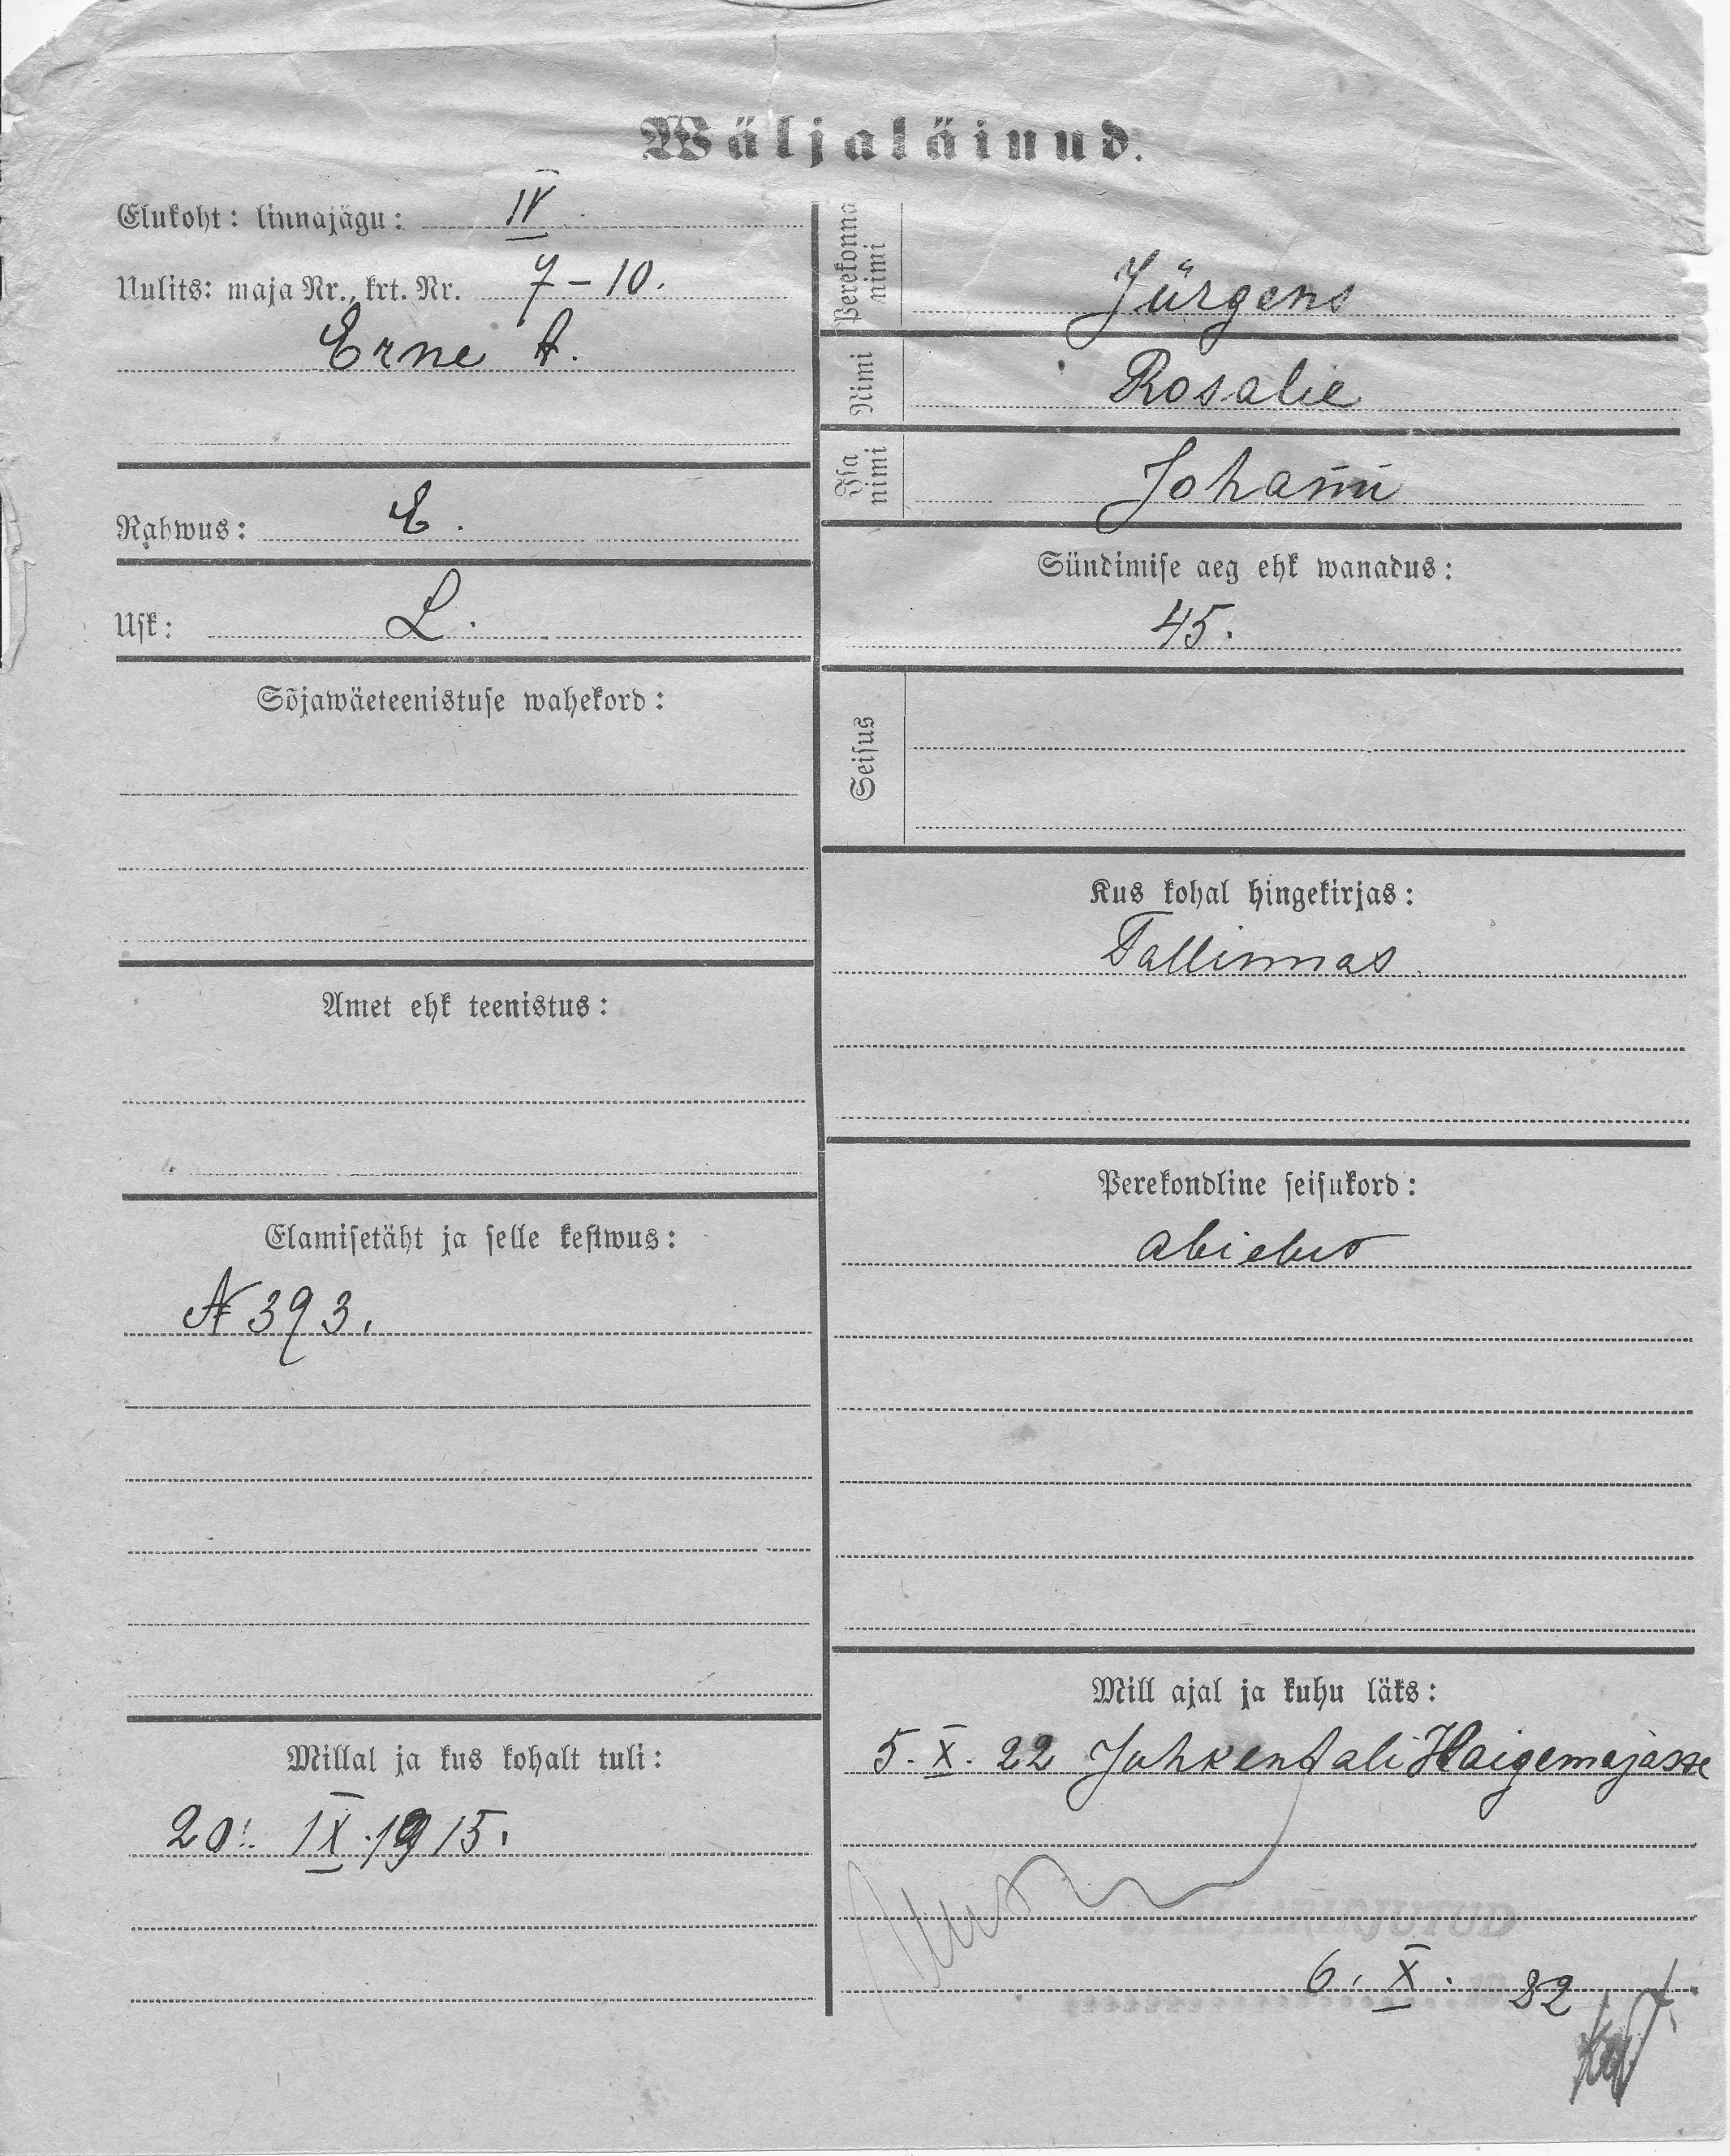 Wäljaläinud.
Elukoht: linnajägu: IV.
Uulits: maja Nr., krt. Nr. 7–10.
Erne t.
Rahwus: E.
Usk: L.
Sõjawäeteenistuse wahekord:
Amet ehk teenistus:
Elamisetäht ja selle kestwus:
N 393.
Millal ja kus kohalt tuli:
20. IX.1915.
Perekonna nimi
Jürgens
Nimi
Rosalie
Isa nimi
Johann
Sündimise aeg ehk wanadus:
45.
Seisus
Kus kohal hingekirjas:
Tallinnas
Perekondline seisukord:
abielus
Mill ajal ja kuhu läks:
5. X. 22 Juhkentali Haigemajasse
6. X. 22